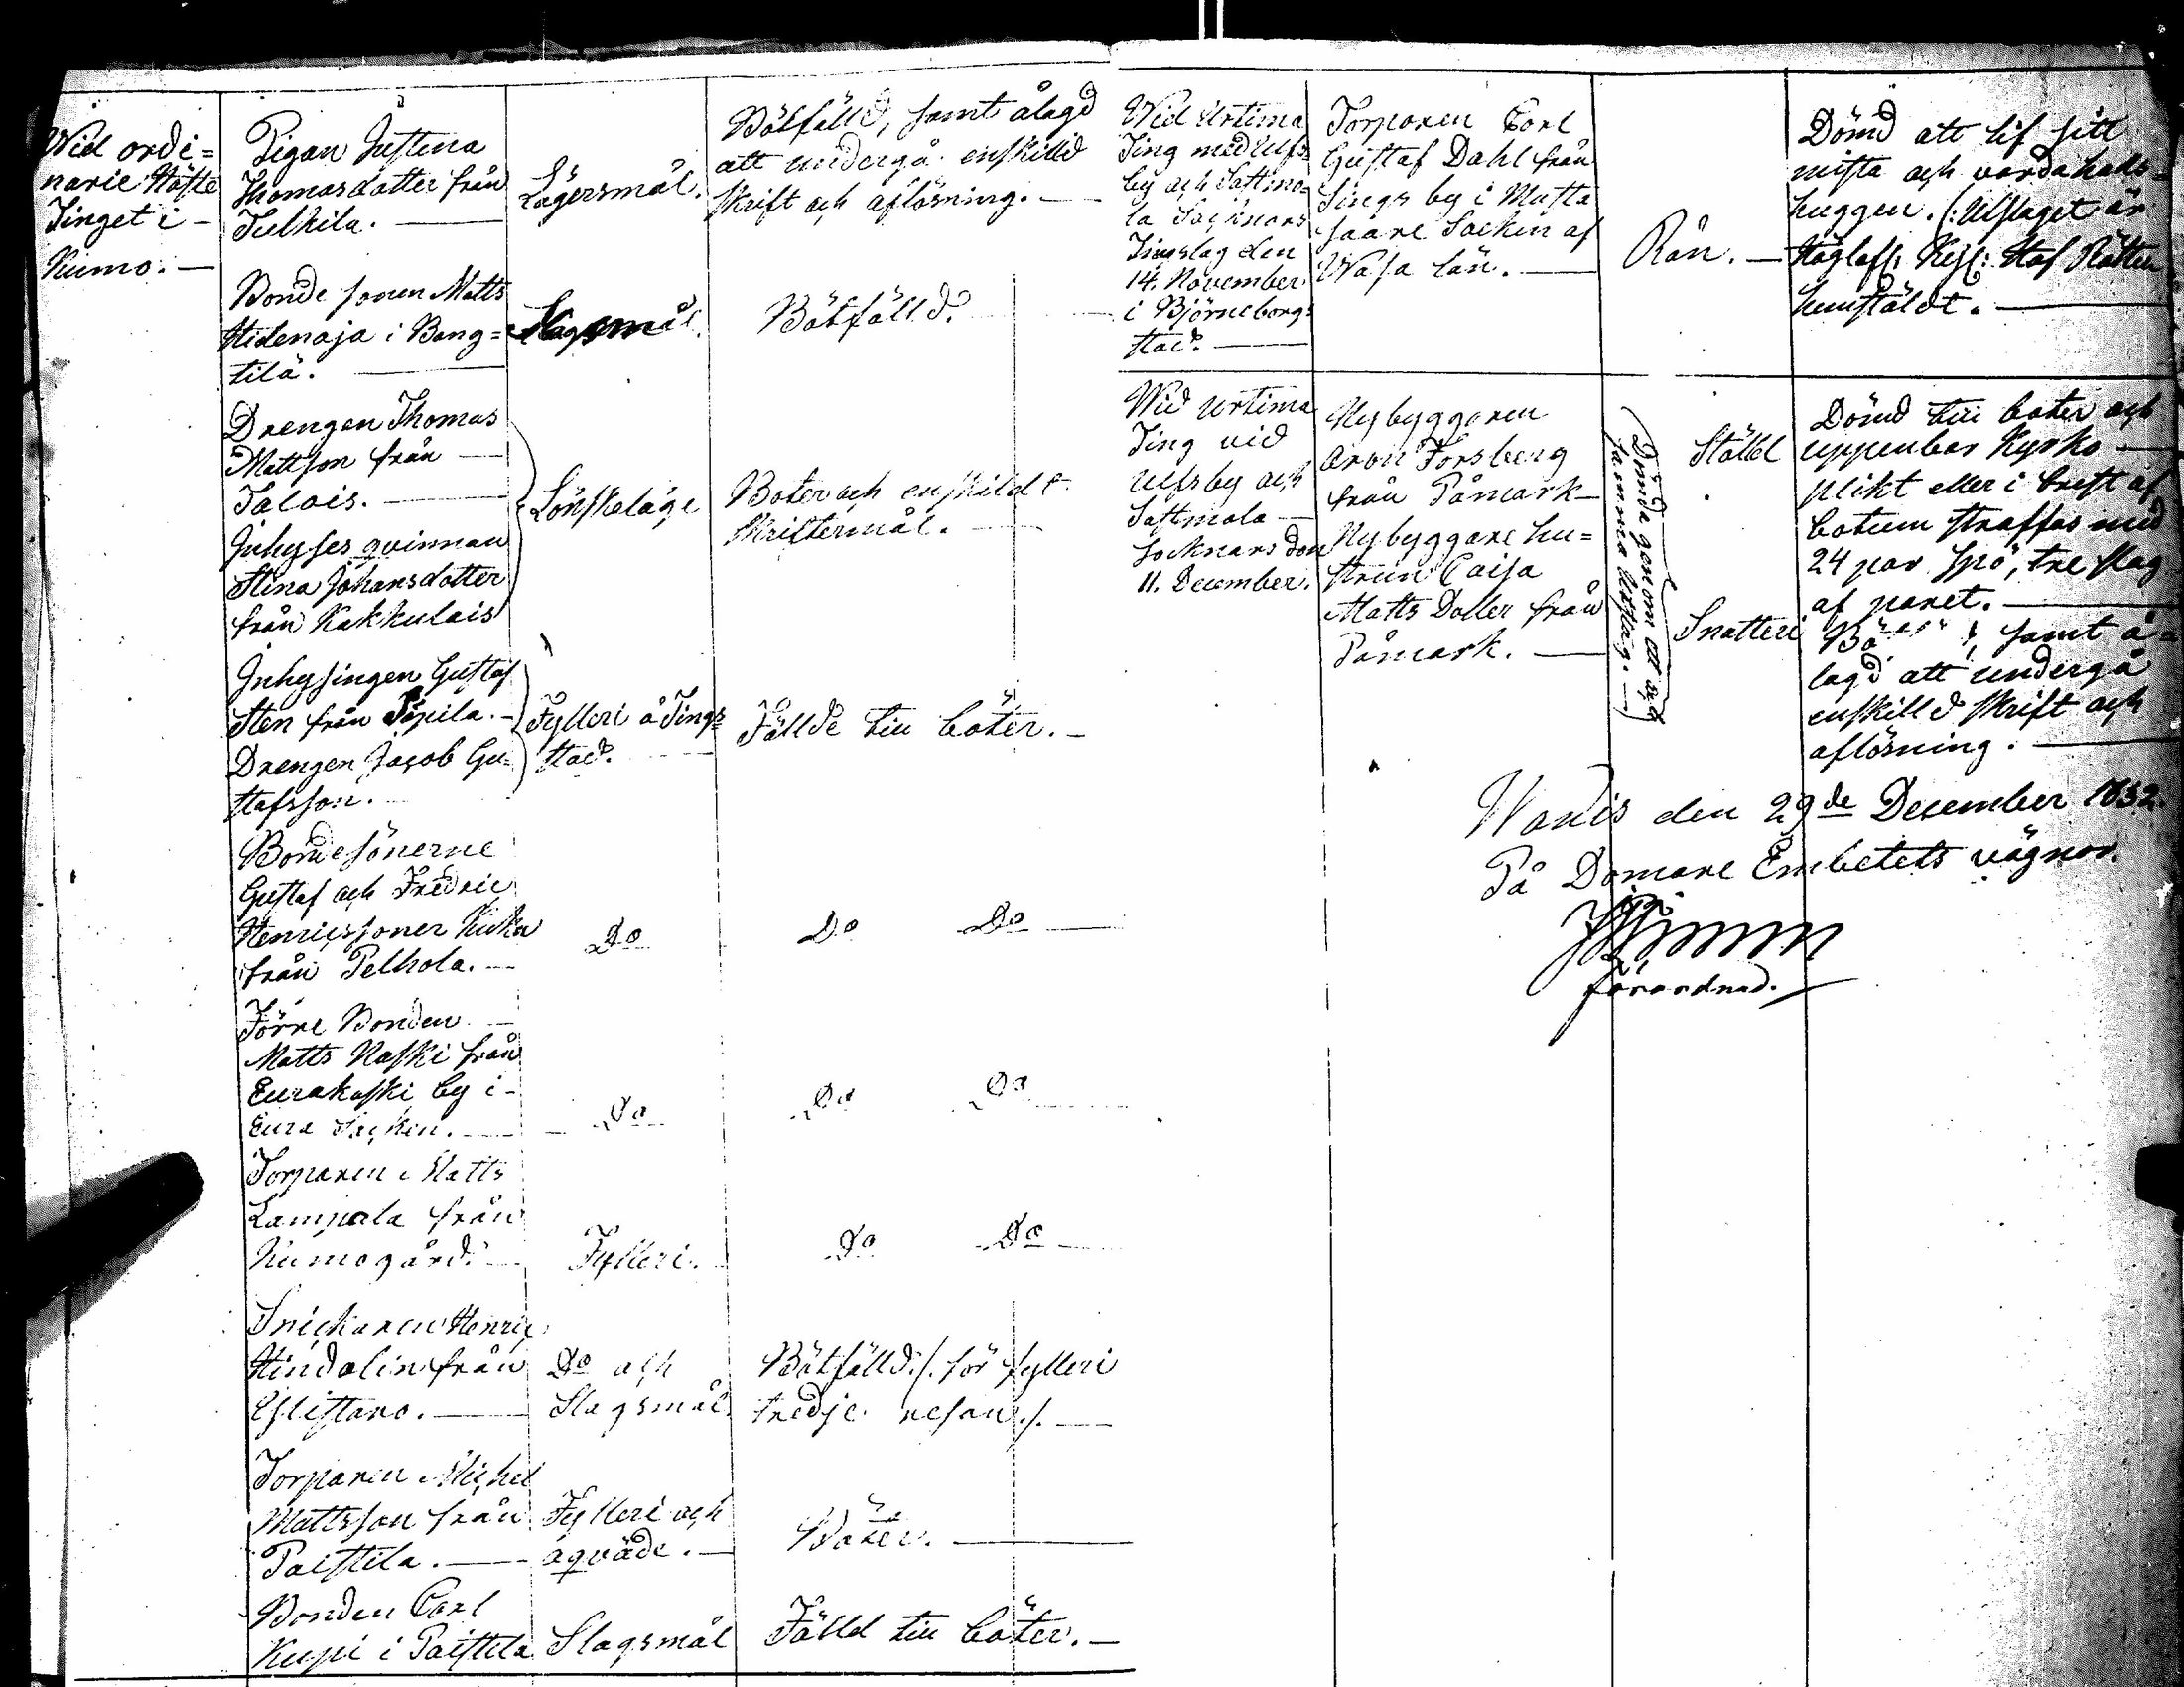 Wid ordi=
narie Höste
Tinget i
Kumo.
Pigan Justina
Thomasdotter från
Tulkila.
Lägersmål.
Bötfälld, samt ålagd
att undergå enskilld
skrift och aflösning.
Bonde sonen Matts
Hidenoja i Bong=
tilä.
Slagsmål.
Bötfälld.
Drengen Thomas
Mattsson från
Talois.
Inhyses qvinnan
Stina Johansdotter
från Kakkulais
Lönskeläge
Böter och enskildt
Skriftermål.
Inhysingen Gustaf
Sten från
Drengen Jacob Gu=
stafsson.
Fylleri å Tings
stad.
Fällde till böter.
Bondesönerne
Gustaf och Fredric
Henricssoner
från Pelhola.
Do
Do Do
Förre Bonden
Matts Naski från
Eurakoski by i
Eura Socken.
Do
Do Do
Torparen Matts
Lampala från
Kumogård.
Fylleri.
Do Do
Snickaren Henric
Hindolin från
Ylistaro.
Do och
Slagsmål.
Bötfälld /. för fylleri
tredje resan ./.
Torparen Michel
Mattsson från
Paistila.
Fylleri och
oqväde.
Böter.
Bonden Carl
Kupi i Paistila
Slagsmål
Fälld till böter.
Wid Urtima
Ting med Ulfs=
by och Sastmo=
la Socknars
Tingslag den
14. November
i Björneborgs
stad.
Torparen Carl
Gustaf Dahl från
by i Musta
saare Socken af
Wasa län.
Rån.
Dömd att lif sitt
mista och varda hals=
huggen. (: Utslaget är
Höglofl. Kejs: Hof Rätten
hemstäldt.
Wid Urtima
Ting vid
Ulfsby och
Sastmola
Socknars den
11. December.
Nybyggaren
Arvid Forsberg
från Påmark
Nybyggare hu=
strun Caisa
Matts Dotter från
Påmark.
Dömde genom ett och
samma Utslag.
Stöld
Snatteri
Dömd till böter och
uppenbar Kyrko
plikt eller i brist af
botum straffas med
24 par spö, tre slag
af paret.
samt å=
lagd att undergå
enskilld skrift och
aflösning.
Wanis den 29de December 1832.
På Domare Embetets vägnar.
förordnad.